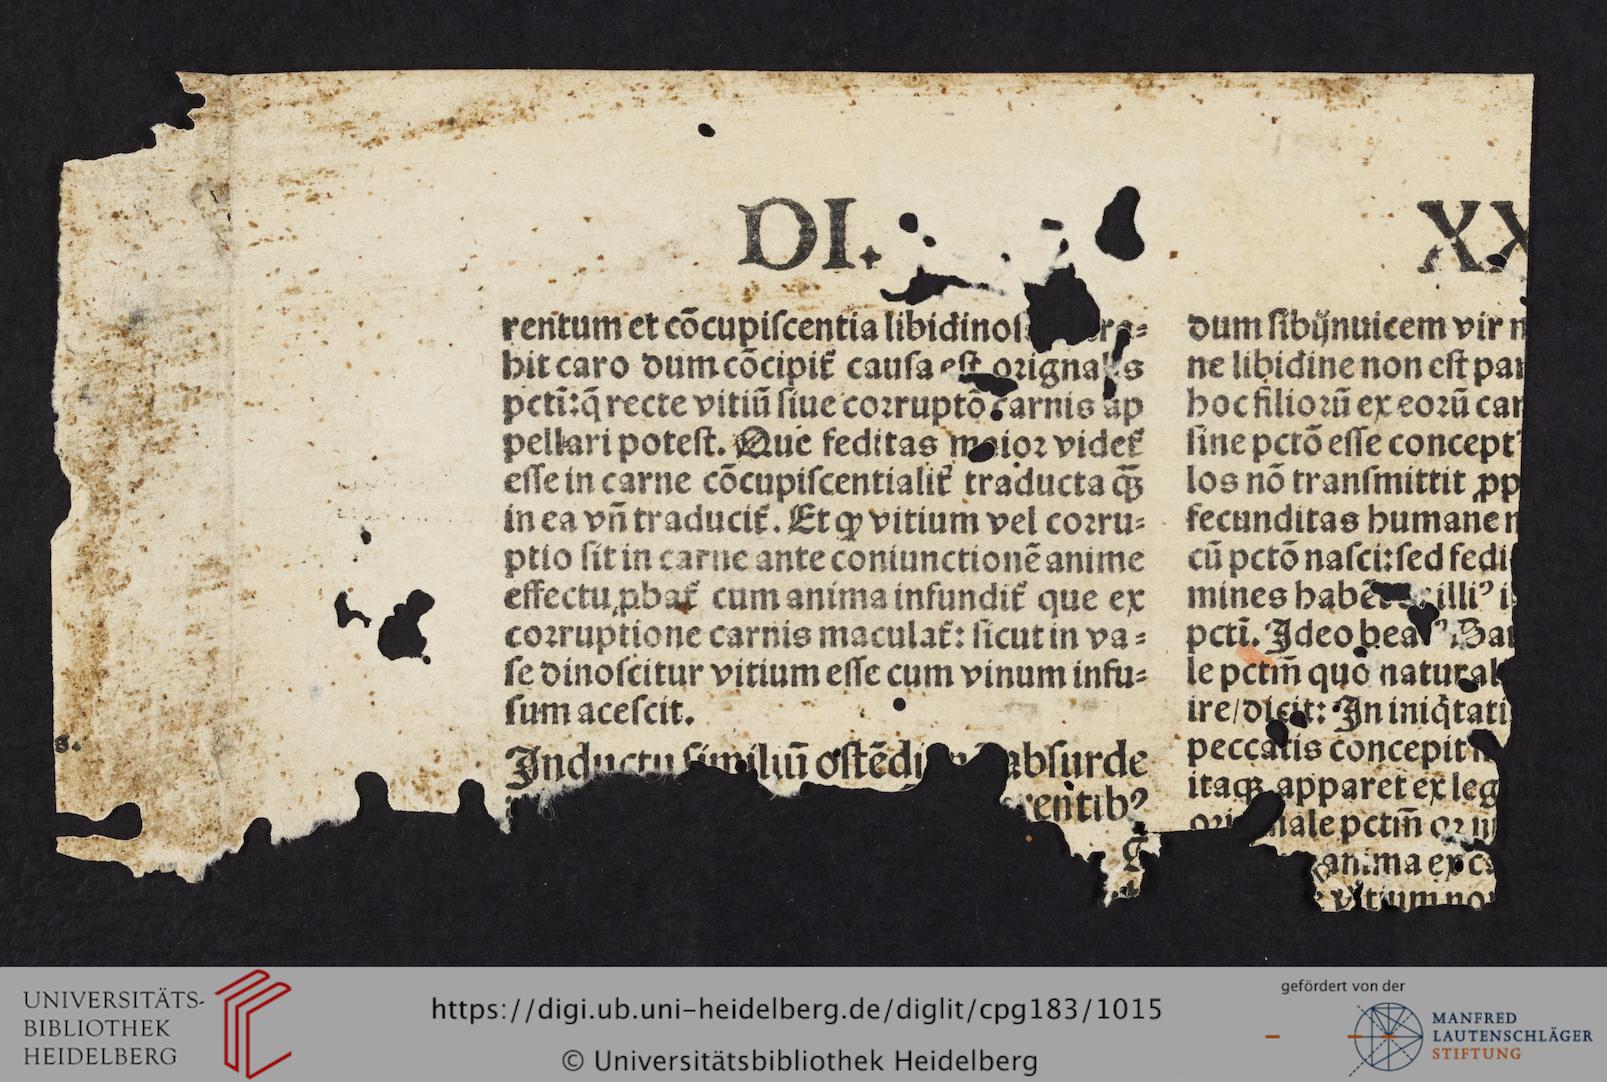 DI.
XX
rentum et cōcupiſcentia libidinoſ
hit caro dum cōcipit̃ cauſa eſt orignalis
pcti:q̄ recte vitiū ſiue corruptō carnis ap
pellari poteſt. Que feditas maior videt̃
eſſe in carne cōcupiſcentialit̃ traducta qꝫ̄
in ea vñ traducit̃. Et ꝙ vitium vel corru⸗
ptio ſit in carne ante coniunctionē anime
effectu ꝓbat̃ cum anima infundit̃ que ex
corruptione carnis maculat̃: ſicut in va⸗
ſe dinoſcitur vitium eſſe cum vinum infu⸗
ſum aceſcit.
Inductu ſimiliū abſurde
rentibꝰ
dum ſibijnuicem vir
ne libidine non eſt
hoc filiorū ex eorū
ſine pctō eſſe conceptꝰ
los nō tranſmittit
fecunditas humane
cū pctō naſci:ſed
mines illiꝰ
pcti. Ideo
le pctm̄ quo
ire/dicit: In
peccatis concepit
itaqꝫ apparet ex
pctm̄
anima
vitium
s.
UNIVERSITÄTS-
BIBLIOTHEK
HEIDELBERG
https://digi.ub.uni-heidelberg.de/diglit/cpg183/1015
© Universitätsbibliothek Heidelberg
gefördert von der
MANFRED
LAUTENSCHLÄGER
STIFTUNG